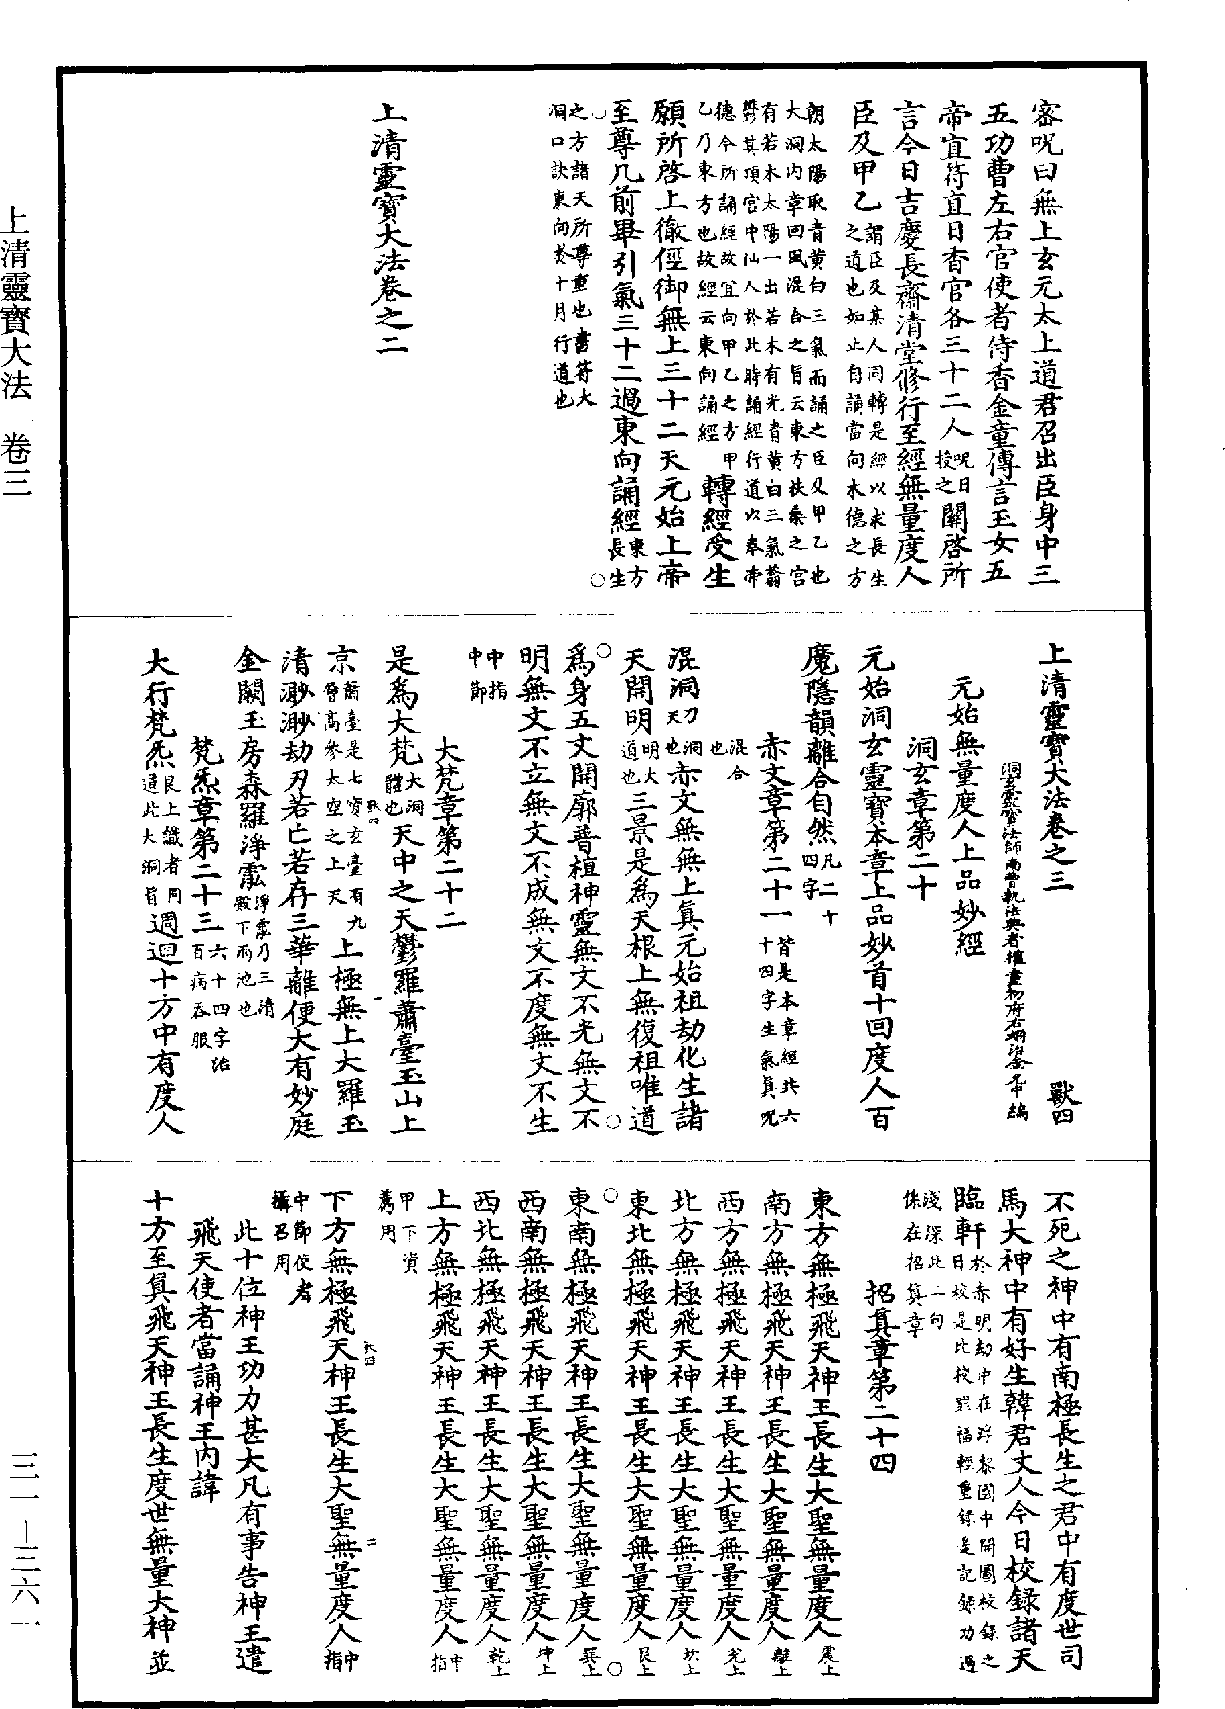 上清靈寶大法　卷三
三一—三六一
密呪曰無上玄元太上道君召出臣身中三
五功曹左右官使者侍香金童傳言玉女五
帝直符直日香官各三十二人呪日授之關啓所
言今日吉慶長齋清堂修行至經無量度人
臣及甲乙謂臣及某人同轉是經以求長生之道也如止自誦當向木德之方
朝太陽取青黃白三氣而誦之臣及甲乙也
大洞內章回風混合之旨云東方扶桑之宮
有若木太陽一出若木有光青黃白三氣翳
鬱其項宮中仙人於此時誦經行道以奉帝
德今所誦經故宜向甲乙之方甲
乙乃東方也故經云東向誦經轉經受生
願所啓上徹徑御無上三十二天元始上帝
至尊几前畢引氣三十二過東向誦經東方長生
之方諸天所尊重也書符大
洞口訣東向卷十月行道也
上清靈寶大法卷之二
上清靈寶大法卷之三　獸四
元始無量度人上品妙經
洞玄章第二十
元始洞玄靈寶本章上品妙首十回度人百
魔隱韻離合自然凡二十四字
赤文章第二十一皆是本章經共六十四字生氣真呪
混合也
混洞乃天也洞赤文無無上真元始祖劫化生諸
天開明明大道也三景是為天根上無復祖唯道
為身五文開廓普植神靈無文不光無文不
明無文不立無文不成無文不度無文不生
中指中節
大梵章第二十二
是為大梵大洞體也天中之天鬱羅蕭臺玉山上
京蕭臺是七寶玄臺有九層高參太空之上天上極無上大羅玉
清渺渺劫刃若亡若存三華離便大有妙庭
金闕玉房森羅淨泓淨泓乃三清殿下雨池也
梵炁章第二十三六十四字治百病吞服
大行梵炁艮上識者同道此大洞旨週迴十方中有度人
不死之神中有南極長生之君中有度世司
馬大神中有好生韓君丈人今日校錄諸天
臨軒於赤明劫中在浮黎國中開圖校錄之日校是比校罪福輕重錄是記錄功過
淺深此二句係在招真章
招真章第二十四
東方無極飛天神王長生大聖無量度人震上
南方無極飛天神王長生大聖無量度人離上
西方無極飛天神王長生大聖無量度人兌上
北方無極飛天神王長生大聖無量度人坎上
東北無極飛天神王長生大聖無量度人艮上
東南無極飛天神王長生大聖無量度人巽上
西南無極飛天神王長生大聖無量度人坤上
西北無極飛天神王長生大聖無量度人乾上
上方無極飛天神王長生大聖無量度人中指
甲下資薦用
下方無極飛天神王長生大聖無量度人中指
中節使者攝召用
此十位神王功力甚大凡有事告神王遣
飛天使者當誦神王內諱
十方至真飛天神王長生度世無量大神並